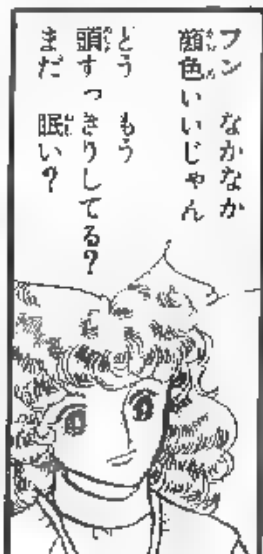 フン なかなか
顔色いいじゃん
どう もう
頭すっきりしてる?
まだ 眠い?